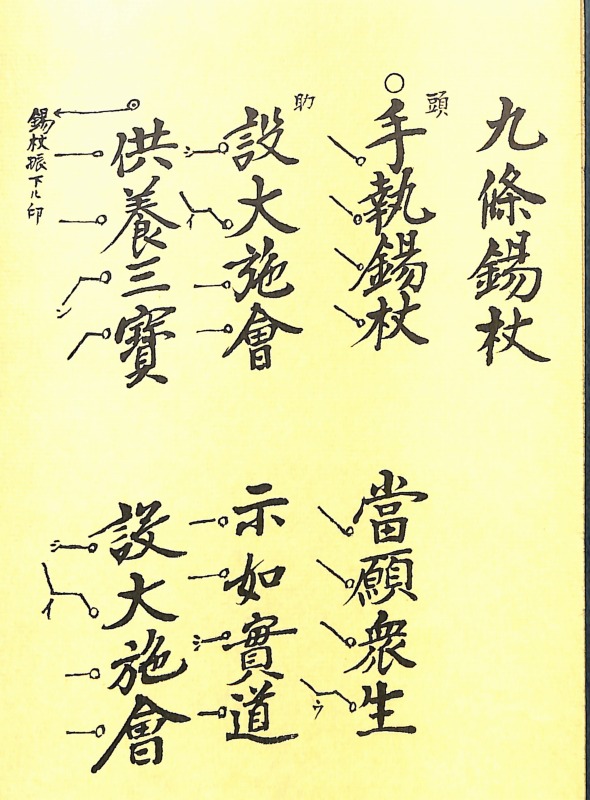 九條錫杖
頭
手執錫杖
當願衆生
ウ
助
設大施會
イ
示如實道
供養三寶
ン
設大施會
イ
錫杖振下ル印